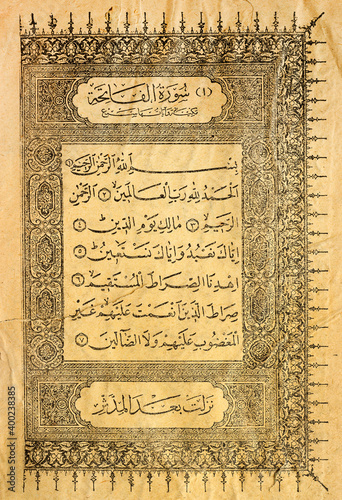 (١) سُورَةُ الْفَاتِحَةِ
مكية وآياتها سبع
بِسْمِ اللّٰهِ الرَّحْمٰنِ الرَّحِيمِ ١
اَلْحَمْدُ لِلّٰهِ رَبِّ الْعَالَمِينَ ٢ اَلرَّحْمٰنِ
الرَّحِيمِ ٣ مَالِكِ يَوْمِ الدِّينِ ٤
اِيَّاكَ نَعْبُدُ وَاِيَّاكَ نَسْتَعِينُ ٥
اِهْدِنَا الصِّرَاطَ الْمُسْتَقِيمَ ٦
صِرَاطَ الَّذِينَ اَنْعَمْتَ عَلَيْهِمْ غَيْرِ
الْمَغْضُوبِ عَلَيْهِمْ وَلَا الضَّالِّينَ ٧
نزلت بعد المدثر
Adobe Stock | #400238385